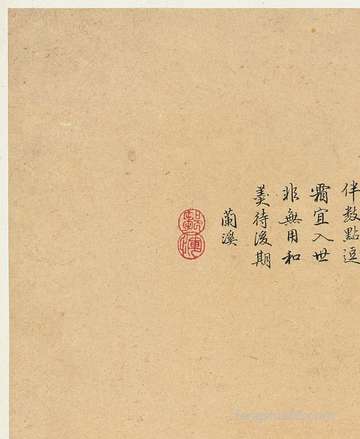 伴數點逗
霜宜入世
非無用和
羹待後期
蘭溪